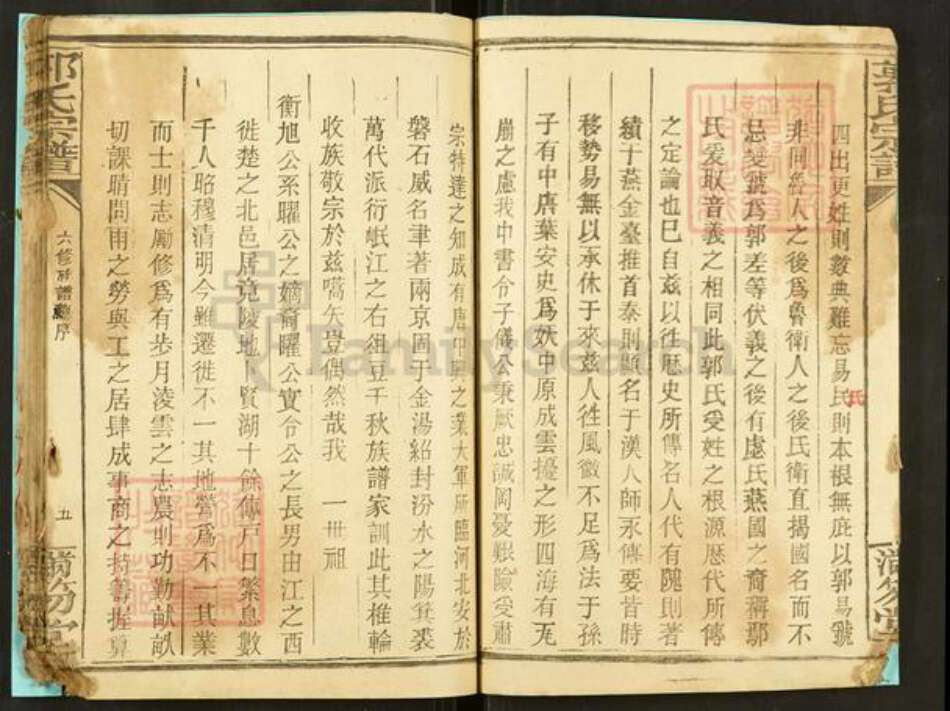 郭氏宗譜
四出更姓則數典難忘易民則本根無庇以郭易虢
氏
非同魯人之後爲魯衛人之後氏衛直揭國名而不
忌變虢爲郭差等伏羲之後有虙氏燕國之裔稱鄢
氏爰取音義之相同此郭氏受姓之根源歷代所傳
之定論也巳自兹以徃歷史所傳名人代有隗則著
績十燕金臺推首泰則顯名于漢人師永傳要皆時
移勢易無以承休于來兹人徃風徽不足爲法于孫
子有中唐葉安史爲妖中原成雲擾之形四海有瓦
崩之慮我中書令子儀公秉厥忠誠罔憂艱險受肅
宗特達之知成有唐中興之業大軍所臨河北安於
磐石威名聿著兩京固于金湯紹封汾水之陽箕裘
萬代派衍岷江之右俎豆千秋族譜家訓此其椎輪
收族敬宗於兹嚆矢豈偶然哉我 一世祖
衡旭公系曜公之嫡裔曜公實合公之長男由江之西
徙楚之北邑居竟陵地卜賢湖十餘傳戸口繁息數
千人昭穆清明今雖遷徙不一其地營爲不一其業
而士則志勵修爲有步月淩雲之志農則功勤畎畝
切課晴問雨之勞與工之居肆成事商之持籌握算
郭氏宗譜
六修宗譜總序
五
滿笏堂
滿笏堂
FamilySearch